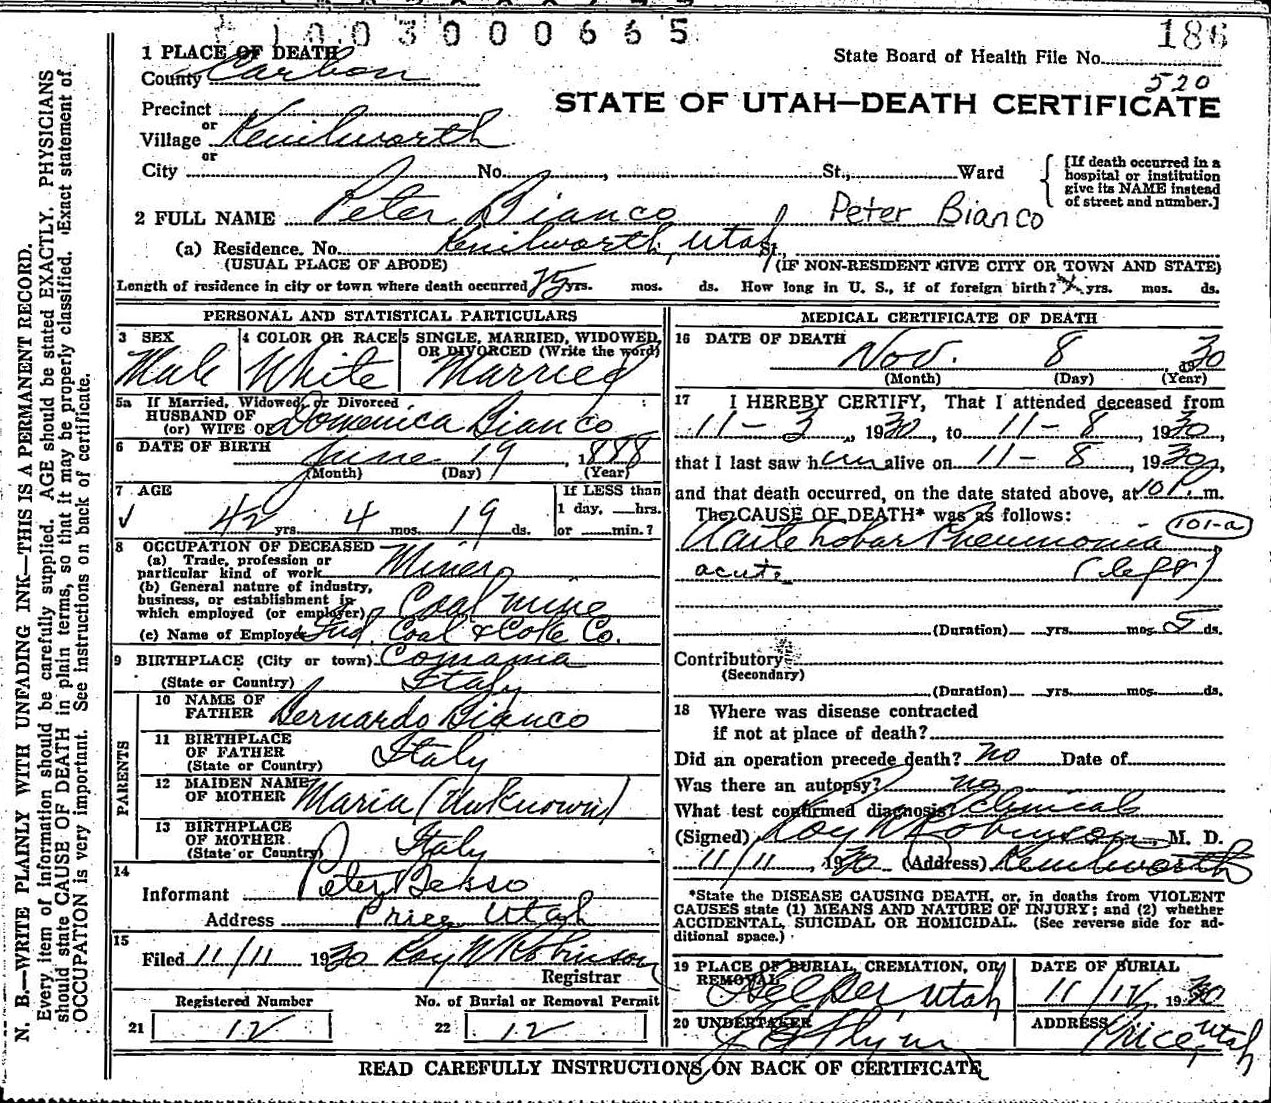 1003000665
186
State Board of Health File No.
520
1 PLACE OF DEATH
County Carbon
STATE OF UTAH—DEATH CERTIFICATE
Precinct
or
Village Kenilworth
or
City No. , St., Ward
[If death occurred in a hospital or institution give its NAME instead of street and number.]
2 FULL NAME Peter Bianco Peter Bianco
(a) Residence. No. Kenilworth, Utah St.,
(USUAL PLACE OF ABODE) (IF NON-RESIDENT GIVE CITY OR TOWN AND STATE)
Length of residence in city or town where death occurred yrs. mos. ds. How long in U. S., if of foreign birth? yrs. mos. ds.
PERSONAL AND STATISTICAL PARTICULARS
3 SEX 4 COLOR OR RACE 5 SINGLE, MARRIED, WIDOWED, OR DIVORCED (Write the word)
Male White Married
5a If Married, Widowed, or Divorced
HUSBAND OF
(or) WIFE OF Domenica Bianco
6 DATE OF BIRTH June 19, 1888
(Month) (Day) (Year)
7 AGE If LESS than
42 yrs. 4 mos. 19 ds. 1 day, hrs.
or min.?
8 OCCUPATION OF DECEASED
(a) Trade, profession or
particular kind of work Miner
(b) General nature of industry,
business, or establishment in
which employed (or employer) Coal mine
(c) Name of Employer Ind. Coal & Coke Co.
9 BIRTHPLACE (City or town) Comania
(State or Country) Italy
PARENTS
10 NAME OF
FATHER Bernardo Bianco
11 BIRTHPLACE
OF FATHER
(State or Country) Italy
12 MAIDEN NAME
OF MOTHER Maria (Unknown)
13 BIRTHPLACE
OF MOTHER
(State or Country) Italy
14
Informant Peter Besso
Address Price, Utah
15
Filed 11/11 1930 Roy W Robinson
Registrar
Registered Number No. of Burial or Removal Permit
21 12 22 12
MEDICAL CERTIFICATE OF DEATH
16 DATE OF DEATH
Nov. 8 1930
(Month) (Day) (Year)
17 I HEREBY CERTIFY, That I attended deceased from
11-3, 1930, to 11-8, 1930,
that I last saw him alive on 11-8, 1930,
and that death occurred, on the date stated above, at 10 P. m.
The CAUSE OF DEATH* was as follows:
101-a
Acute Lobar Pneumonia
acute (left)
(Duration) yrs. mos. 5 ds.
Contributory
(Secondary)
(Duration) yrs. mos. ds.
18 Where was disease contracted
if not at place of death?
Did an operation precede death? no Date of
Was there an autopsy? no
What test confirmed diagnosis? clinical
(Signed) Roy W Robinson, M. D.
11/11 1930 (Address) Kenilworth
*State the DISEASE CAUSING DEATH, or, in deaths from VIOLENT
CAUSES state (1) MEANS AND NATURE OF INJURY; and (2) whether
ACCIDENTAL, SUICIDAL OR HOMICIDAL. (See reverse side for ad-
ditional space.)
19 PLACE OF BURIAL, CREMATION, OR REMOVAL DATE OF BURIAL
Helper Utah 11/12 1930
20 UNDERTAKER ADDRESS
Price, Utah
READ CAREFULLY INSTRUCTIONS ON BACK OF CERTIFICATE
N. B.—WRITE PLAINLY WITH UNFADING INK—THIS IS A PERMANENT RECORD.
Every item of information should be carefully supplied. AGE should be stated EXACTLY. PHYSICIANS
should state CAUSE OF DEATH in plain terms, so that it may be properly classified. Exact statement of
OCCUPATION is very important. See instructions on back of certificate.